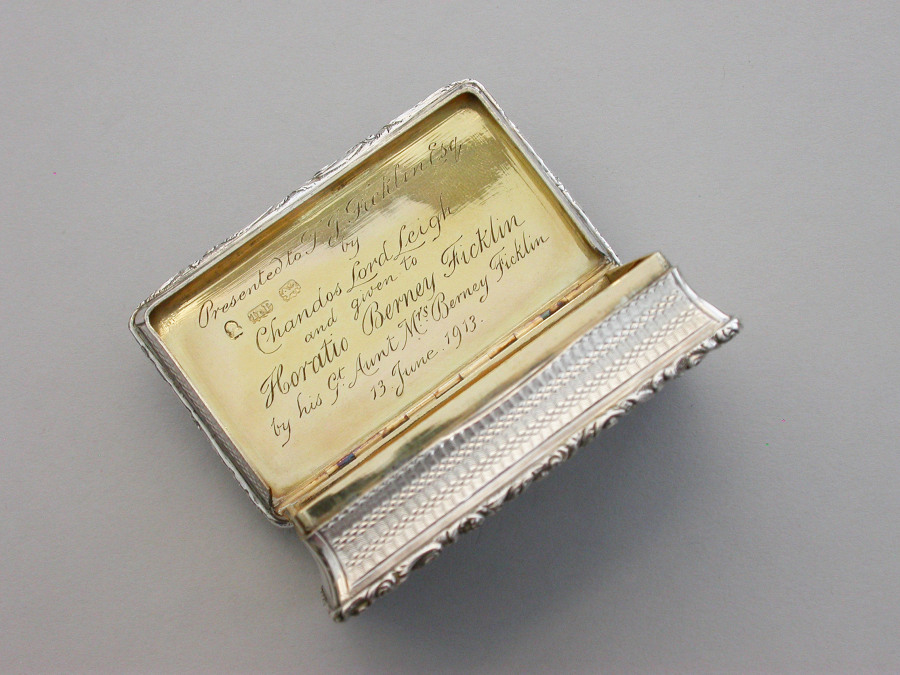 Presented to T. J. Ficklin Esq.
by
Chandos Lord Leigh
and given to
Horatio Berney Ficklin
by his Gt. Aunt Mrs. Berney Ficklin
13 June. 1913.